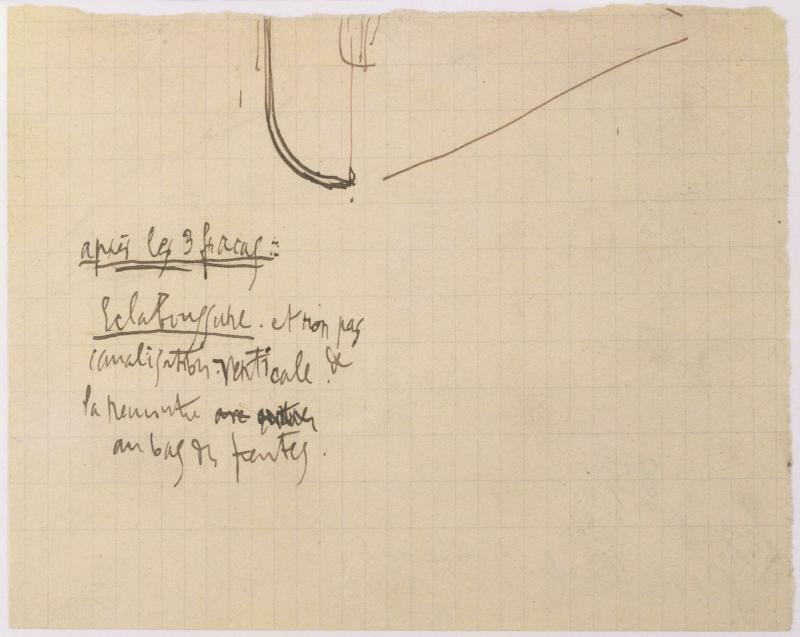 après les 3 fracas =
Eclaboussure. et non pas
canalisation verticale. de
la rencontre
au bas des pentes.